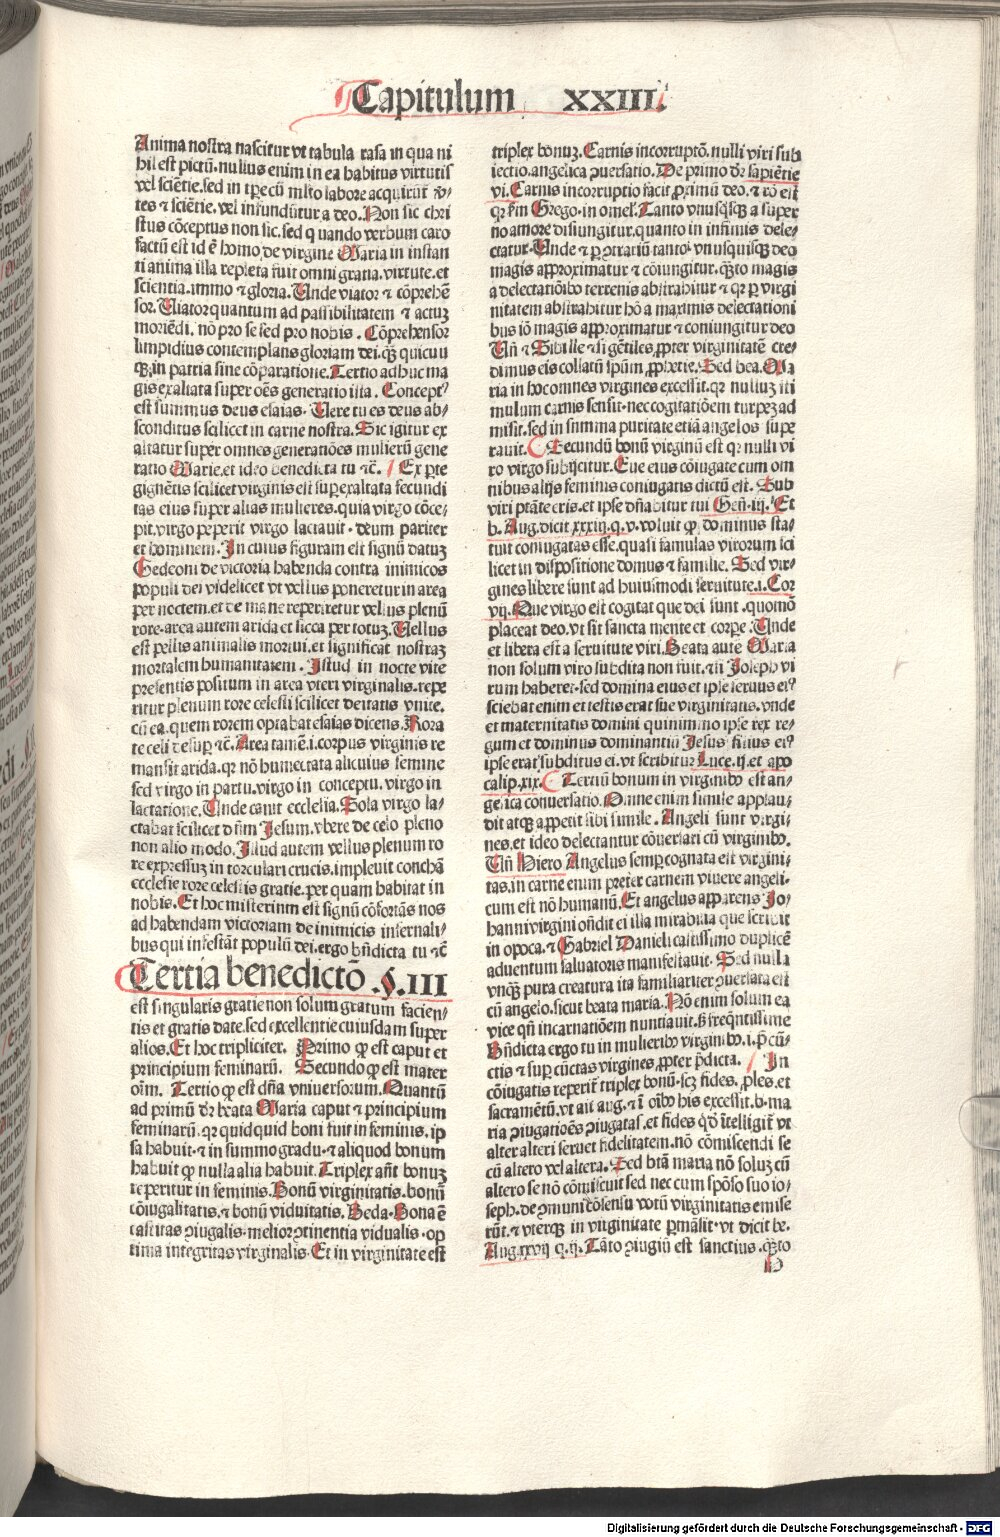 Capitulum XXIII.
Anima nostra nascitur vt tabula rasa in qua ni
hil est pictū. nullius enim in ea habitus virtutis
vel sciētie. sed in specū multo labore acquirūt v̄r-
tes ⁊ sciētie. vel infundūtur a deo. Non sic chri
stus cōceptus non sic. sed quando verbum caro
factū est id ē homo. de virgine Maria in instan
ti anima illa repleta fuit omni gratia. virtute. et
scientia. immo ⁊ gloria. Unde viator ⁊ cōprehē
sor. Uiator quantum ad passibilitatem ⁊ actuꝫ
moriēdi. nō pro se sed pro nobis. Cōprehensor
limpidius contemplans gloriam dei. q̄ꝫ quicun
qꝫ in patria sine cōparatione. Tertio adhuc ma
gis exaltata super oēs generatio illa. Concept⁹
est summus deus esaias. Uere tu es deus ab/
sconditus scilicet in carne nostra. Sic igitur ex
altatur super omnes generatiōes mulierū gene
ratio Marie. et ideo benedicta tu ⁊c̄. / Ex ꝑte
gignētis scilicet virginis est suꝑexaltata fecundi
tas eius super alias mulieres. quia virgo cōce-
pit. virgo peperit virgo lactauit. deum pariter
et hominem. In cuius figuram est signū datuꝫ
Gedeoni de victoria habenda contra inimicos
populi dei videlicet vt vellus poneretur in area
per noctem. et de mane reperiretur vellus plenū
rore. area autem arida et sicca per totuꝫ. Uellus
est pellis animalis mortui. et significat nostraꝫ
mortalem humanitatem. Istud in nocte vite
presentis positum in area vteri virginalis. repe
ritur plenum rore celesti scilicet deitatis vnite.
cū ea. quem rorem optabat esaias dicens. Rora
te celi desuꝑ ⁊c̄. Area tamē. i. corpus virginis re
mansit arida. qꝛ nō humectata alicuius semine
sed virgo in partu. virgo in conceptu. virgo in
lactatione. Unde canit ecclesia. Sola virgo la/
ctabat scilicet dn̄m Iesum. vbere de celo pleno
non alio modo. Illud autem vellus plenum ro
re expressuꝫ in torculari crucis. impleuit conchā
ecclesie rore celestis gratie. per quam habitat in
nobis. Et hoc misterium est signū cōfortās nos
ad habendam victoriam de inimicis infernali/
bus qui infestāt populū dei. ergo bn̄dicta tu ⁊c̄
Tertia benedictō .§. III
est singularis gratie non solum gratum facien/
tis et gratis date. sed excellentie cuiusdam super
alios. Et hoc tripliciter. Primo ꝙ est caput et
principium feminarū. Secundo ꝙ est mater
oīm. Tertio ꝙ est dn̄a vniuersorum. Quantū
ad primū dꝛ beata Maria caput ⁊ principium
feminarū. qꝛ quidquid boni fuit in feminis. ip
sa habuit. ⁊ in summo gradu. ⁊ aliquod bonum
habuit ꝙ nulla alia habuit. Triplex aūt bonuꝫ
reperitur in feminis. Bonū virginitatis. bonū
cōiugalitatis. ⁊ bonū viduitatis. Beda. Bona ē
castitas ꝯiugalis. melior ꝯtinentia vidualis. op
tima integritas virginalis. Et in virginitate est
triplex bonuꝫ. Carnis incorruptō. nulli viri sub
iectio. angelica ꝯuersatio. De primo dꝛ sapiētie
vi. Carnis incorruptio facit ꝓximū deo. ⁊ rō est
qꝛ ẜm Grego. in omel. Tanto vnusq̄sqꝫ a super
no amore disiungitur. quanto in infimis dele-
ctatur. Unde ⁊ ꝑ ꝯtrariū tanto vnusquisqꝫ deo
magis approximatur ⁊ cōiungitur. q̄ꝫto magis
a delectatiōibꝰ terrenis abstrahitur ⁊ qꝛ ꝑ virgi
nitatem abstrahitur hō a maximis delectationi
bus iō magis approximatur ⁊ coniungitur deo
Un̄ ⁊ Sibille ⁊ si gētiles. ꝓpter virginitatē cre-
dimus eis collatū spūm ꝓphetie. Sed bea. Ma
ria in hoc omnes virgines excessit. qꝛ nulluꝫ sti
mulum carnis sensit. nec cogitatiōem turpeꝫ ad
misit. sed in summa puritate etiā angelos supe
rauit. Secundū bonū virginū est qꝛ nulli vi
ro virgo subijcitur. Eue eius cōiugate cum om
nibus alijs feminis coniugatis dictū est. Sub
viri ptāte eris. et ipse dn̄abitur tui Gen̄. iij. Et
b. Aug. dicit xxxiij. q. v. voluit ꝙ dominus sta/
tuit coniugatas esse. quasi famulas virorum sci
licet in dispositione domus ⁊ familie. Sed vir-
gines libere sunt ab huiusmodi seruitute. i. Cor
vij. Que virgo est cogitat que dei sunt. quomō
placeat deo. vt sit sancta mente et corpe. Unde
et libera est a seruitute viri. Beata autē Maria
non solum viro subdita non fuit. ⁊ si Joseph vi
rum haberet. sed domina eius et ipse seruus ei⁹
sciebat enim et testis erat sue virginitatis. vnde
et maternitatis domini quinimmo ipse rex re-
gum et dominus dominantiū Jesus filius ei⁹
ipse erat subditus ei. vt scribitur Luce. ij. et apo
calip. xix. Tertiū bonum in virginibꝰ est an-
gelica conuersatio. Omne enim simile applau/
dit atqꝫ appetit sibi simile. Angeli sunt virgi-
nes. et ideo delectantur cōuersari cū virginibꝰ.
Un̄ Hiero Angelus semꝑ cognata est virgini-
tas. in carne enim preter carnem viuere angeli.
cum est nō humanū. Et angelus apparens Jo-
hanni virgini ondit ei illa mirabilia que scribit
in opoca. ⁊ Gabriel Danieli castissimo duplicē
aduentum saluatoris manifestauit. Sed nulla
vnqꝫ pura creatura ita familiariter ꝯuersata est
cū angelo. sicut beata maria. Nō enim solum ea
vice qn̄ incarnatiōem nuntiauit. ẜ freq̄ntissime
Bn̄dicta ergo tu in mulieribꝰ virginibꝰ. i. p̄ cū-
ctis ⁊ suꝑ cūctas virgines. ꝓpter p̄dicta. / In
cōiugatis reperit̄ triplex bonū. scꝫ fides. ꝓles. et
sacramētū. vt ait aug. ⁊ ī oībꝰ his excessit. b. ma
ria ꝯiugatiōes ꝯiugatas. et fides q̄do ītelligit̄ vt
alter alteri seruet fidelitatem. nō cōmiscendi se
cū altero vel altera. Sed btā maria nō soluꝫ cū
altero se nō cōmiscuit sed nec cum spōso suo io/
seph. de ꝯmuni cōsensu votū virginitatis emise
rūt. ⁊ vterqꝫ in virginitate ꝑmāsit. vt dicit be.
Aug. xxvij q. ij. Tāto ꝯiugiū est sanctius. q̄ꝫto